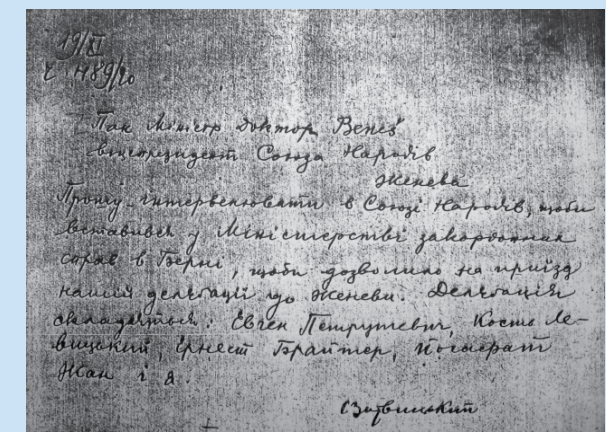 19/XI
ч 489/20
Пан Міністр доктор Бенеш
віцепрезидент Союза Народів
Женева
Прошу інтервенювати в Союзі Народів, щоби
вставився у Міністерстві закордонних
справ в Берні, щоби дозволило на приїзд
нашій делєгації до Женеви. Делєгація
складається: Євген Петрушевич, Кость Ле-
вицький, Ернест Брайтер,
Жан і я.